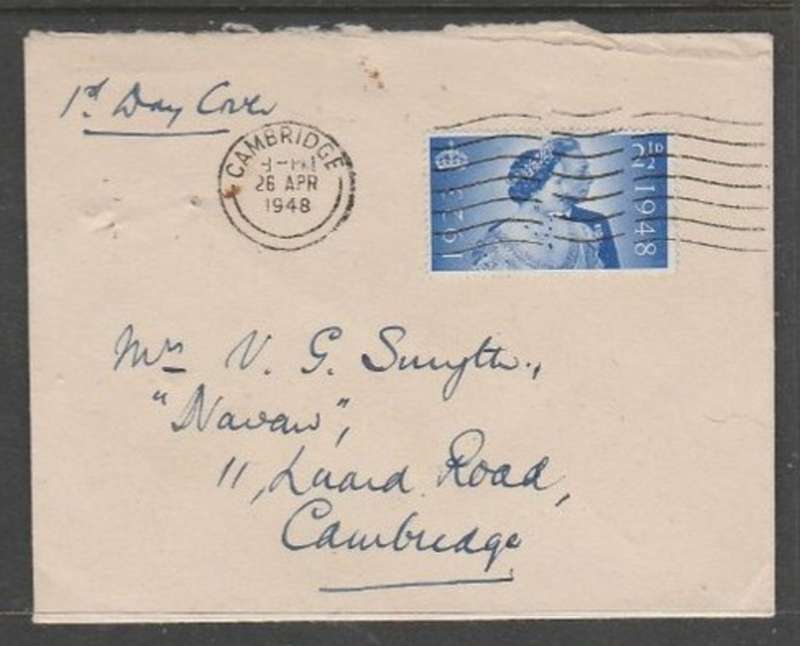 1st Day Cover
CAMBRIDGE
26 APR
1948
2½D
1923
1948
Mrs V. G. Smyth,
"Navan",
11, Luard Road,
Cambridge